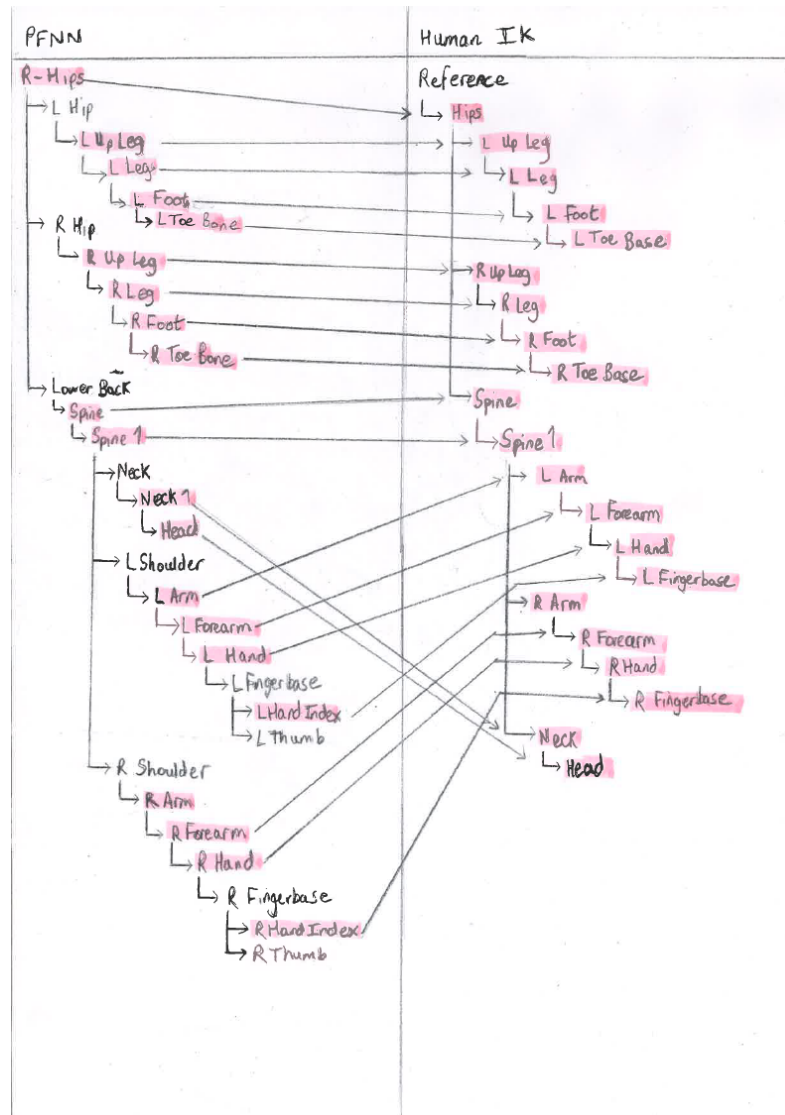 PFNN
R-Hips
L Hip
L Up Leg
L Leg
L Foot
L Toe Bone
R Hip
R Up Leg
R Leg
R Foot
R Toe Bone
Lower Back
Spine
Spine 1
Neck
Neck 1
Head
L Shoulder
L Arm
L Forearm
L Hand
L Fingerbase
L Hand Index
L Thumb
R Shoulder
R Arm
R Forearm
R Hand
R Fingerbase
R Hand Index
R Thumb
Human IK
Reference
Hips
L Up Leg
L Leg
L Foot
L Toe Base
R Up Leg
R Leg
R Foot
R Toe Base
Spine
Spine 1
L Arm
L Forearm
L Hand
L Fingerbase
R Arm
R Forearm
R Hand
R Fingerbase
Neck
Head